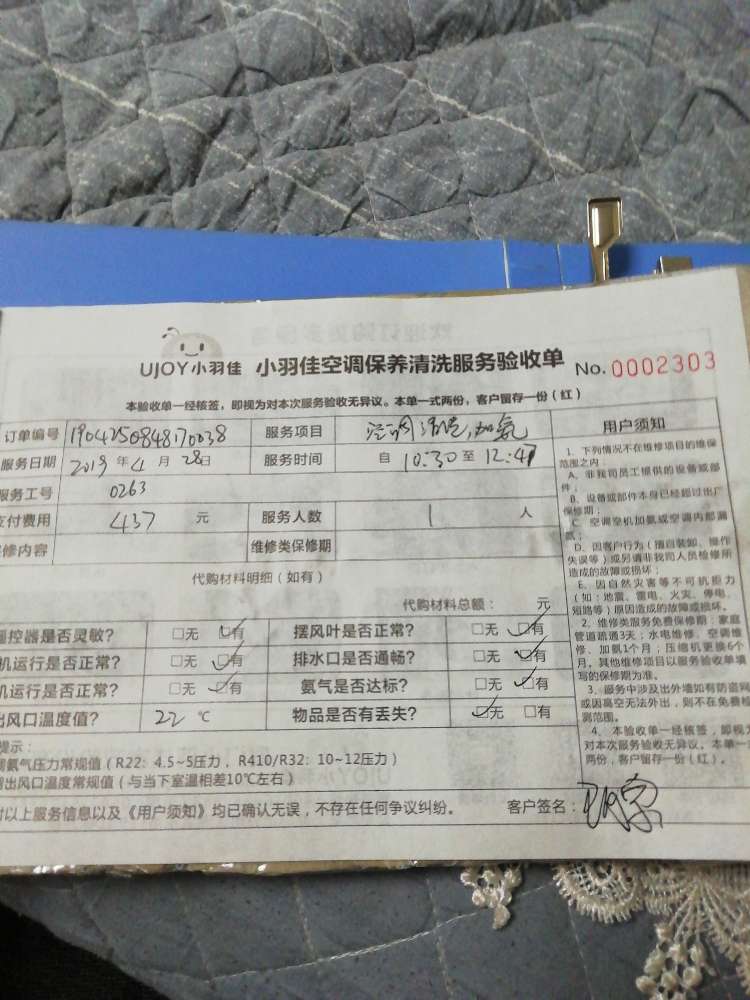 UJOY小羽佳 小羽佳空调保养清洗服务验收单 No. 0002303
本验收单一经核签，即视为对本次服务验收无异议。本单一式两份，客户留存一份（红）
订单编号 服务项目 加氨
服务日期 2019年4月28日 服务时间 自 10:30 至 12:47
服务工号 0263
支付费用 437 元 服务人数 1 人
修内容 维修类保修期
代购材料明细（如有）
代购材料总额： 元
控器是否灵敏? □无 □有 摆风叶是否正常? □无 □有
机运行是否正常? □无 □有 排水口是否通畅? □无 □有
机运行是否正常? □无 □有 氨气是否达标? □无 □有
出风口温度值? 22 ℃ 物品是否有丢失? □无 □有
提示：
氨气压力常规值（R22：4.5~5压力，R410/R32：10~12压力）
出风口温度常规值（与当下室温相差10℃左右）
以上服务信息以及《用户须知》均已确认无误，不存在任何争议纠纷。 客户签名：
用户须知
1、下列情况不在维修项目的维保
范围之内：
A、非我司员工提供的设备或部
件；
B、设备或部件本身已经超过出厂
保修期；
C、空调空机加氨或空调内部漏
氨；
D、因客户行为（擅自装卸、操作
失误等）或另请非我司人员检修所
造成的故障或损坏；
E、因自然灾害等不可抗拒力
（如：地震、雷电、火灾、停电、
短路等）原因造成的故障或损坏。
2、维修类服务免费保修期：家庭
管道疏通3天；水电维修、空调维
修、加氨1个月；压缩机更换6个
月。其他维修项目以服务验收单填
写的保修期为准。
3、服务中涉及出外墙如有防盗网
或因高空无法外出，则不在免费检
测范围。
4、本验收单一经核签，即视为
对本次服务验收无异议。本单一式
两份，客户留存一份（红）。